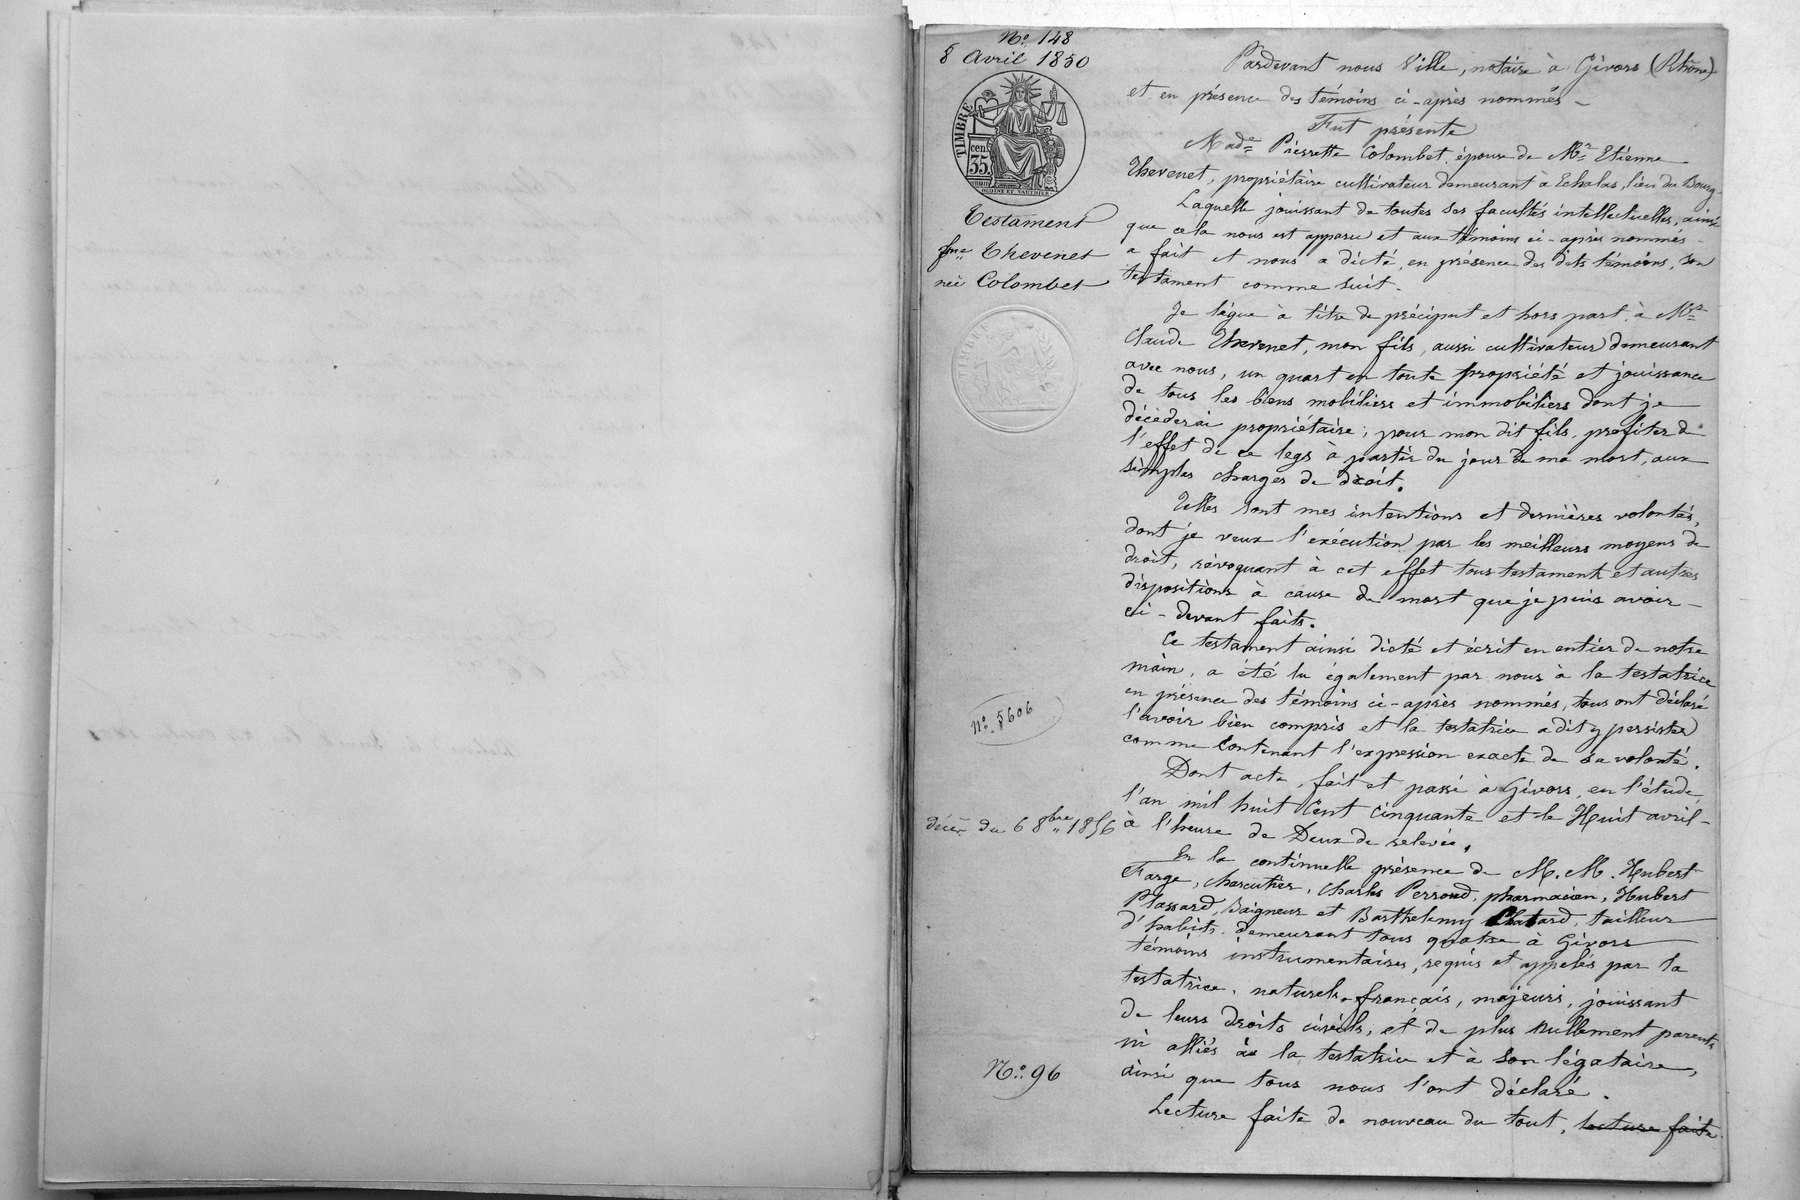 N.º 148
8 Avril 1850
TIMBRE
cen.
35.
Testament
fme Thevenet
née Colombet
TIMBRE
Nº 5606
décèd. du 6 8bre 1856
Nº 96
Pardevant nous Ville, notaire à Givors (Rhône)
et en présence des témoins ci-après nommés -
Fut présente
Made Pierrette Colombet, épouse de Mr Etienne
Thevenet, propriétaire cultivateur demeurant à Echalas, lieu du Bourg,
Laquelle jouissant de toutes ses facultés intellectuelles, ainsi
que cela nous est apparu et aux témoins ci-après nommés -
a fait et nous a dicté, en présence des dits témoins, son
testament comme suit.
Je lègue à titre de préciput et hors part, à Mr
Claude Thevenet, mon fils, aussi cultivateur demeurant
avec nous, un quart en toute propriété et jouissance
de tous les biens mobiliers et immobiliers dont je
décèderai propriétaire; pour mon dit fils, profiter de
l'effet de ce legs à partir du jour de ma mort, aux
simples charges de droit.
Telles sont mes intentions et dernières volontés,
dont je veux l'exécution par les meilleurs moyens de
droit, révoquant à cet effet tous testament et autres
dispositions à cause de mort que je puis avoir -
ci-devant faits.
Ce testament ainsi dicté et écrit en entier de notre
main, a été lu également par nous à la testatrice
en présence des témoins ci-après nommés, tous ont déclaré
l'avoir bien compris et la testatrice a dit y persister
comme contenant l'expression exacte de sa volonté.
Dont acte, fait et passé à Givors, en l'étude,
l'an mil huit cent cinquante et le Huit avril -
à l'heure de Deux de relevée.
En la continuelle présence de M.M. Hubert
Farge, charcutier, Charles Perroud, pharmacien, Hubert
Plassard, Baigneur et Barthelemy Chatard, tailleur
d'habits, demeurant tous quatre à Givors
témoins instrumentaires, requis et appelés par la
testatrice, naturels français, majeurs, jouissant
de leurs droits civils, et de plus nullement parents
ni alliés à la testatrice et à son légataire,
ainsi que tous nous l'ont déclaré.
Lecture faite de nouveau du tout, lecture faite